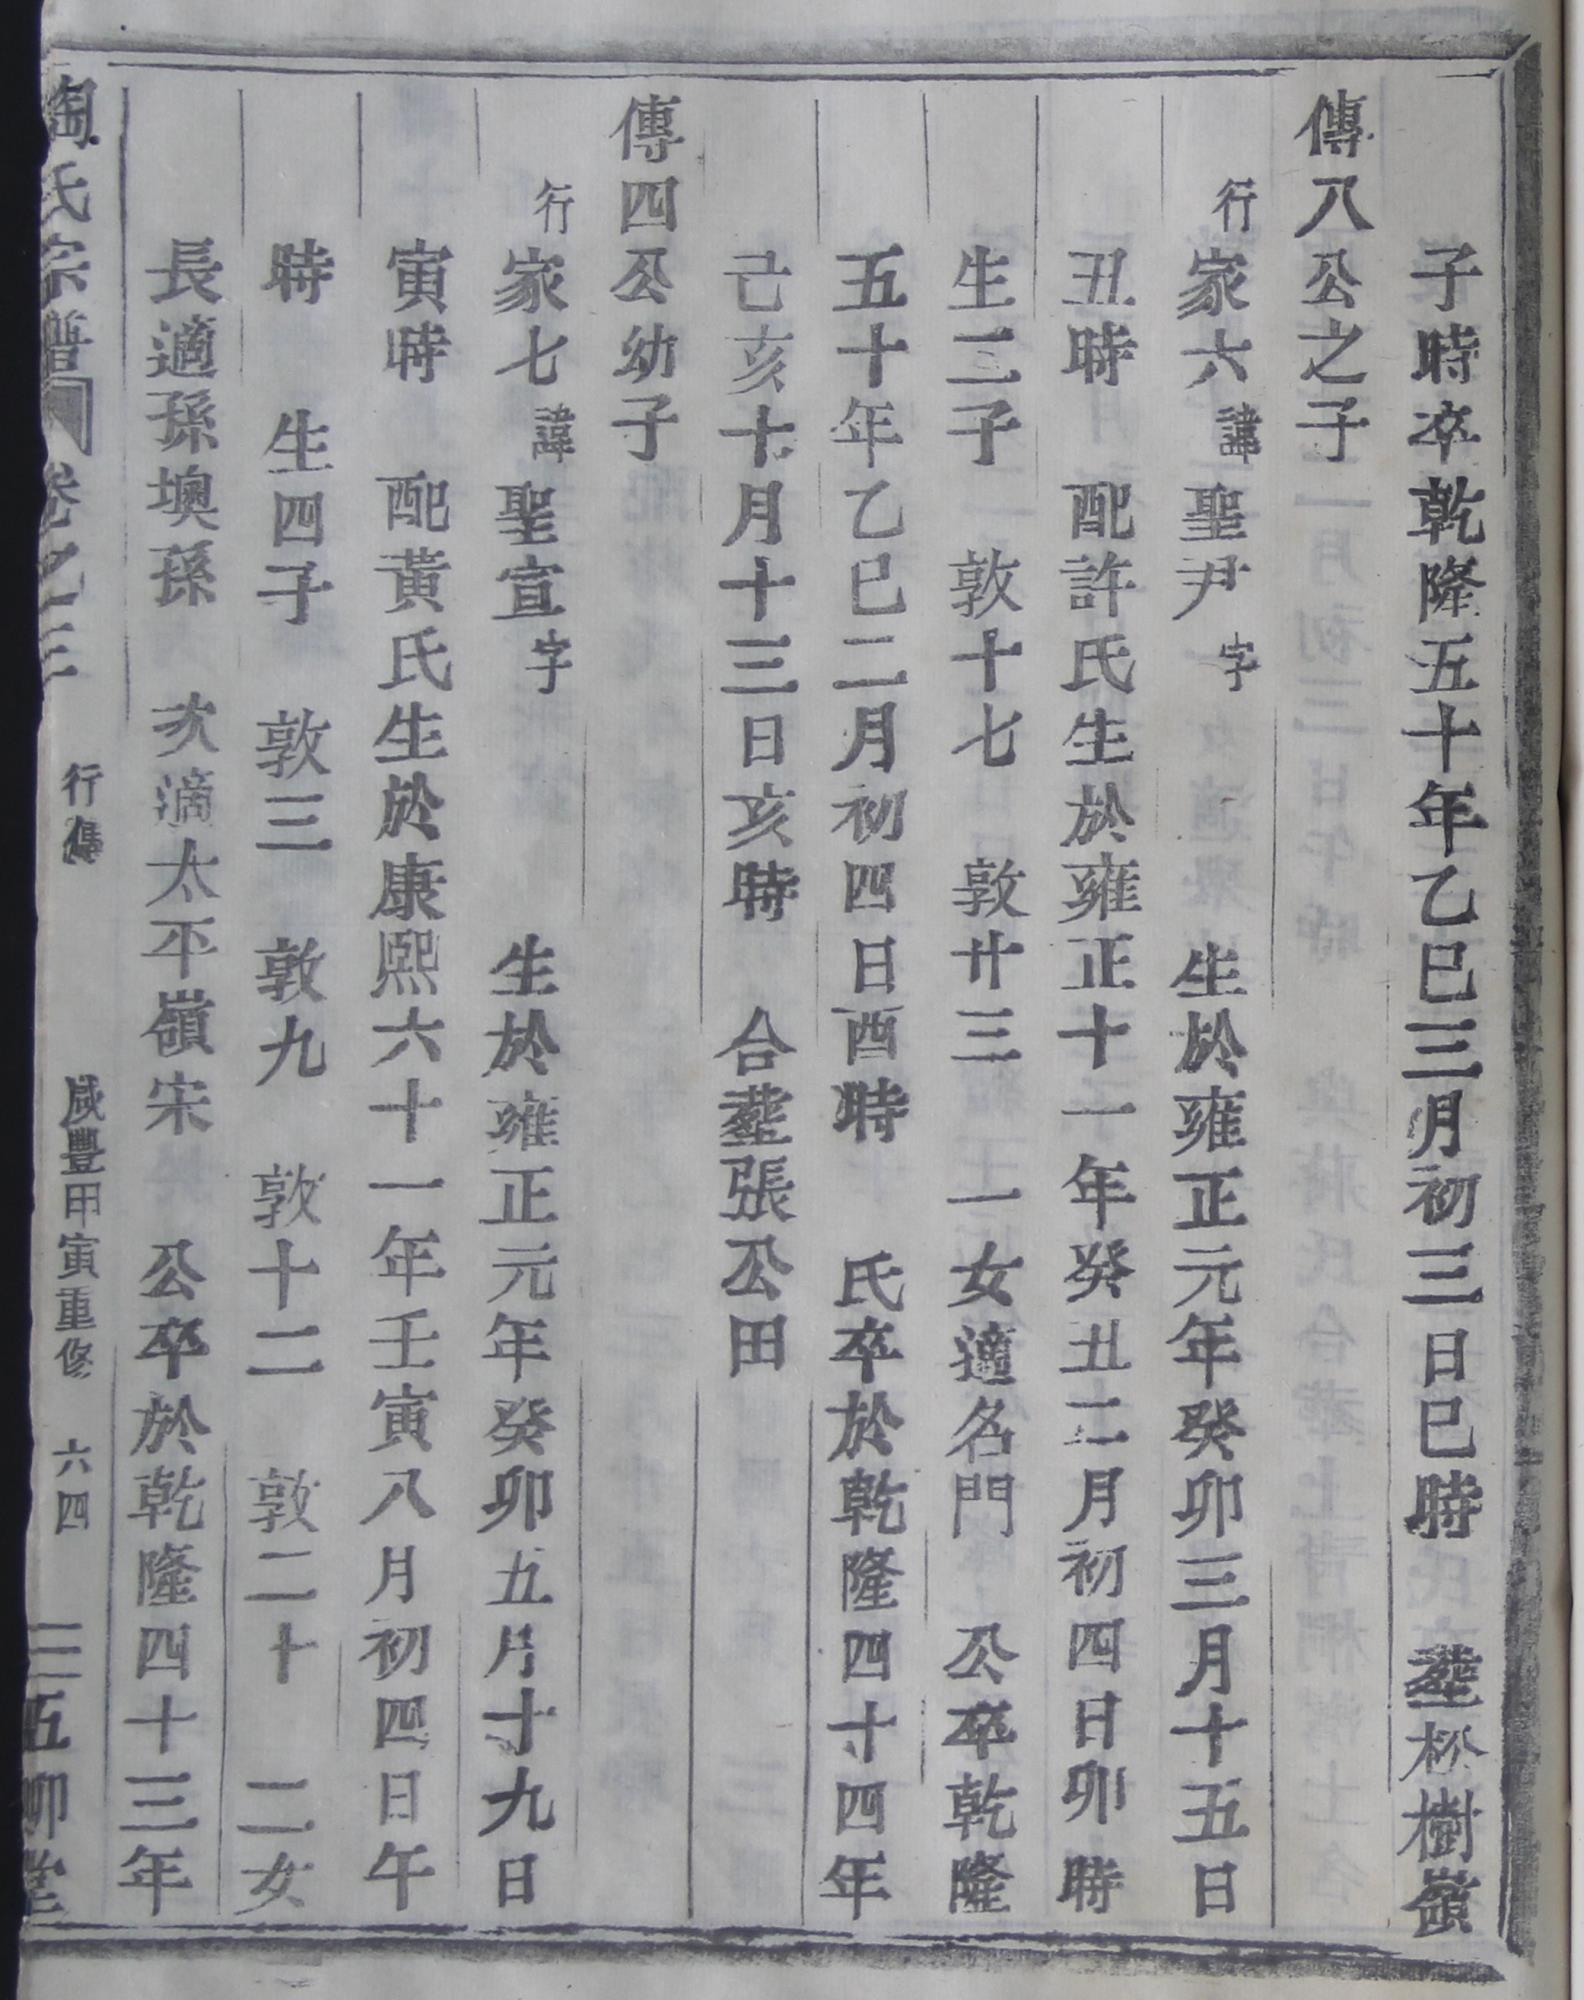 子時卒乾隆五十年乙巳三月初三日巳時　塟松樹嶺
傳八公之子
行家六諱聖尹字　生於雍正元年癸卯三月十五日
丑時　配許氏生於雍正十一年癸丑二月初四日卯時
生二子　敦十七　敦廿三　一女適名門　公卒乾隆
五十年乙巳二月初四日酉時　氏卒於乾隆四十四年
己亥十月十三日亥時　合塟張公田
傳四公幼子
行家七諱聖宣字　生於雍正元年癸卯五月十九日
寅時　配黃氏生於康熙六十一年壬寅八月初四日午
時　生四子　敦三　敦九　敦十二　敦二十　二女
長適孫墺孫　次適太平嶺宋　公卒於乾隆四十三年
陶氏宗譜　卷之三　行傳　咸豐甲寅重修　六四　三　五柳堂